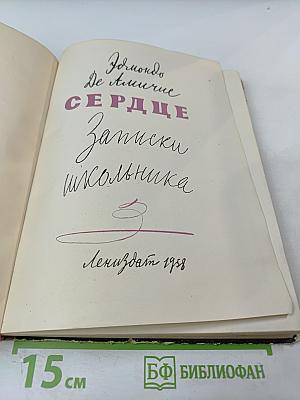 Эдмондо
Де Амичис
СЕРДЦЕ
Записки
школьника
Лениздат 1958
15 см
БФ БИБЛИОФАН